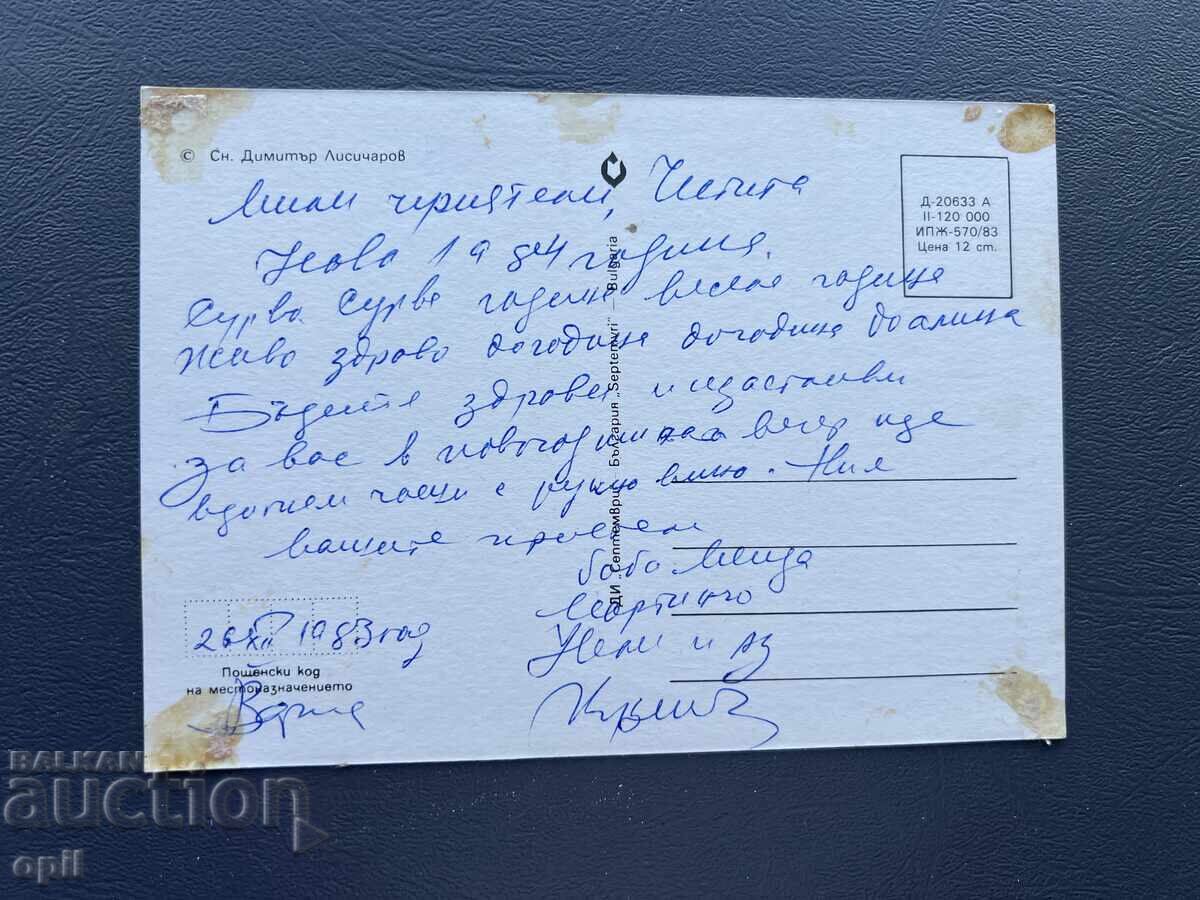 © Сн. Димитър Лисичаров
Мили приятели, Честита
Нова 1984 година.
Сурва Сурва година весела година
Живо здраво догодина догодина до амина
Бъдете здрави и щастливи
за вас в новогодишната вечер ще
вдигнем чаши с руйно вино. Ние
вашите приятели
баба Мица
Мартинчо
Нели и аз
26 XII 1983 год
Пощенски код
на местоназначението
Варна
Д-20633 А
II-120 000
ИПЖ-570/83
Цена 12 ст.
ДИ „Септември" България „Septemvri" Bulgaria
BALKAN
auction
opil